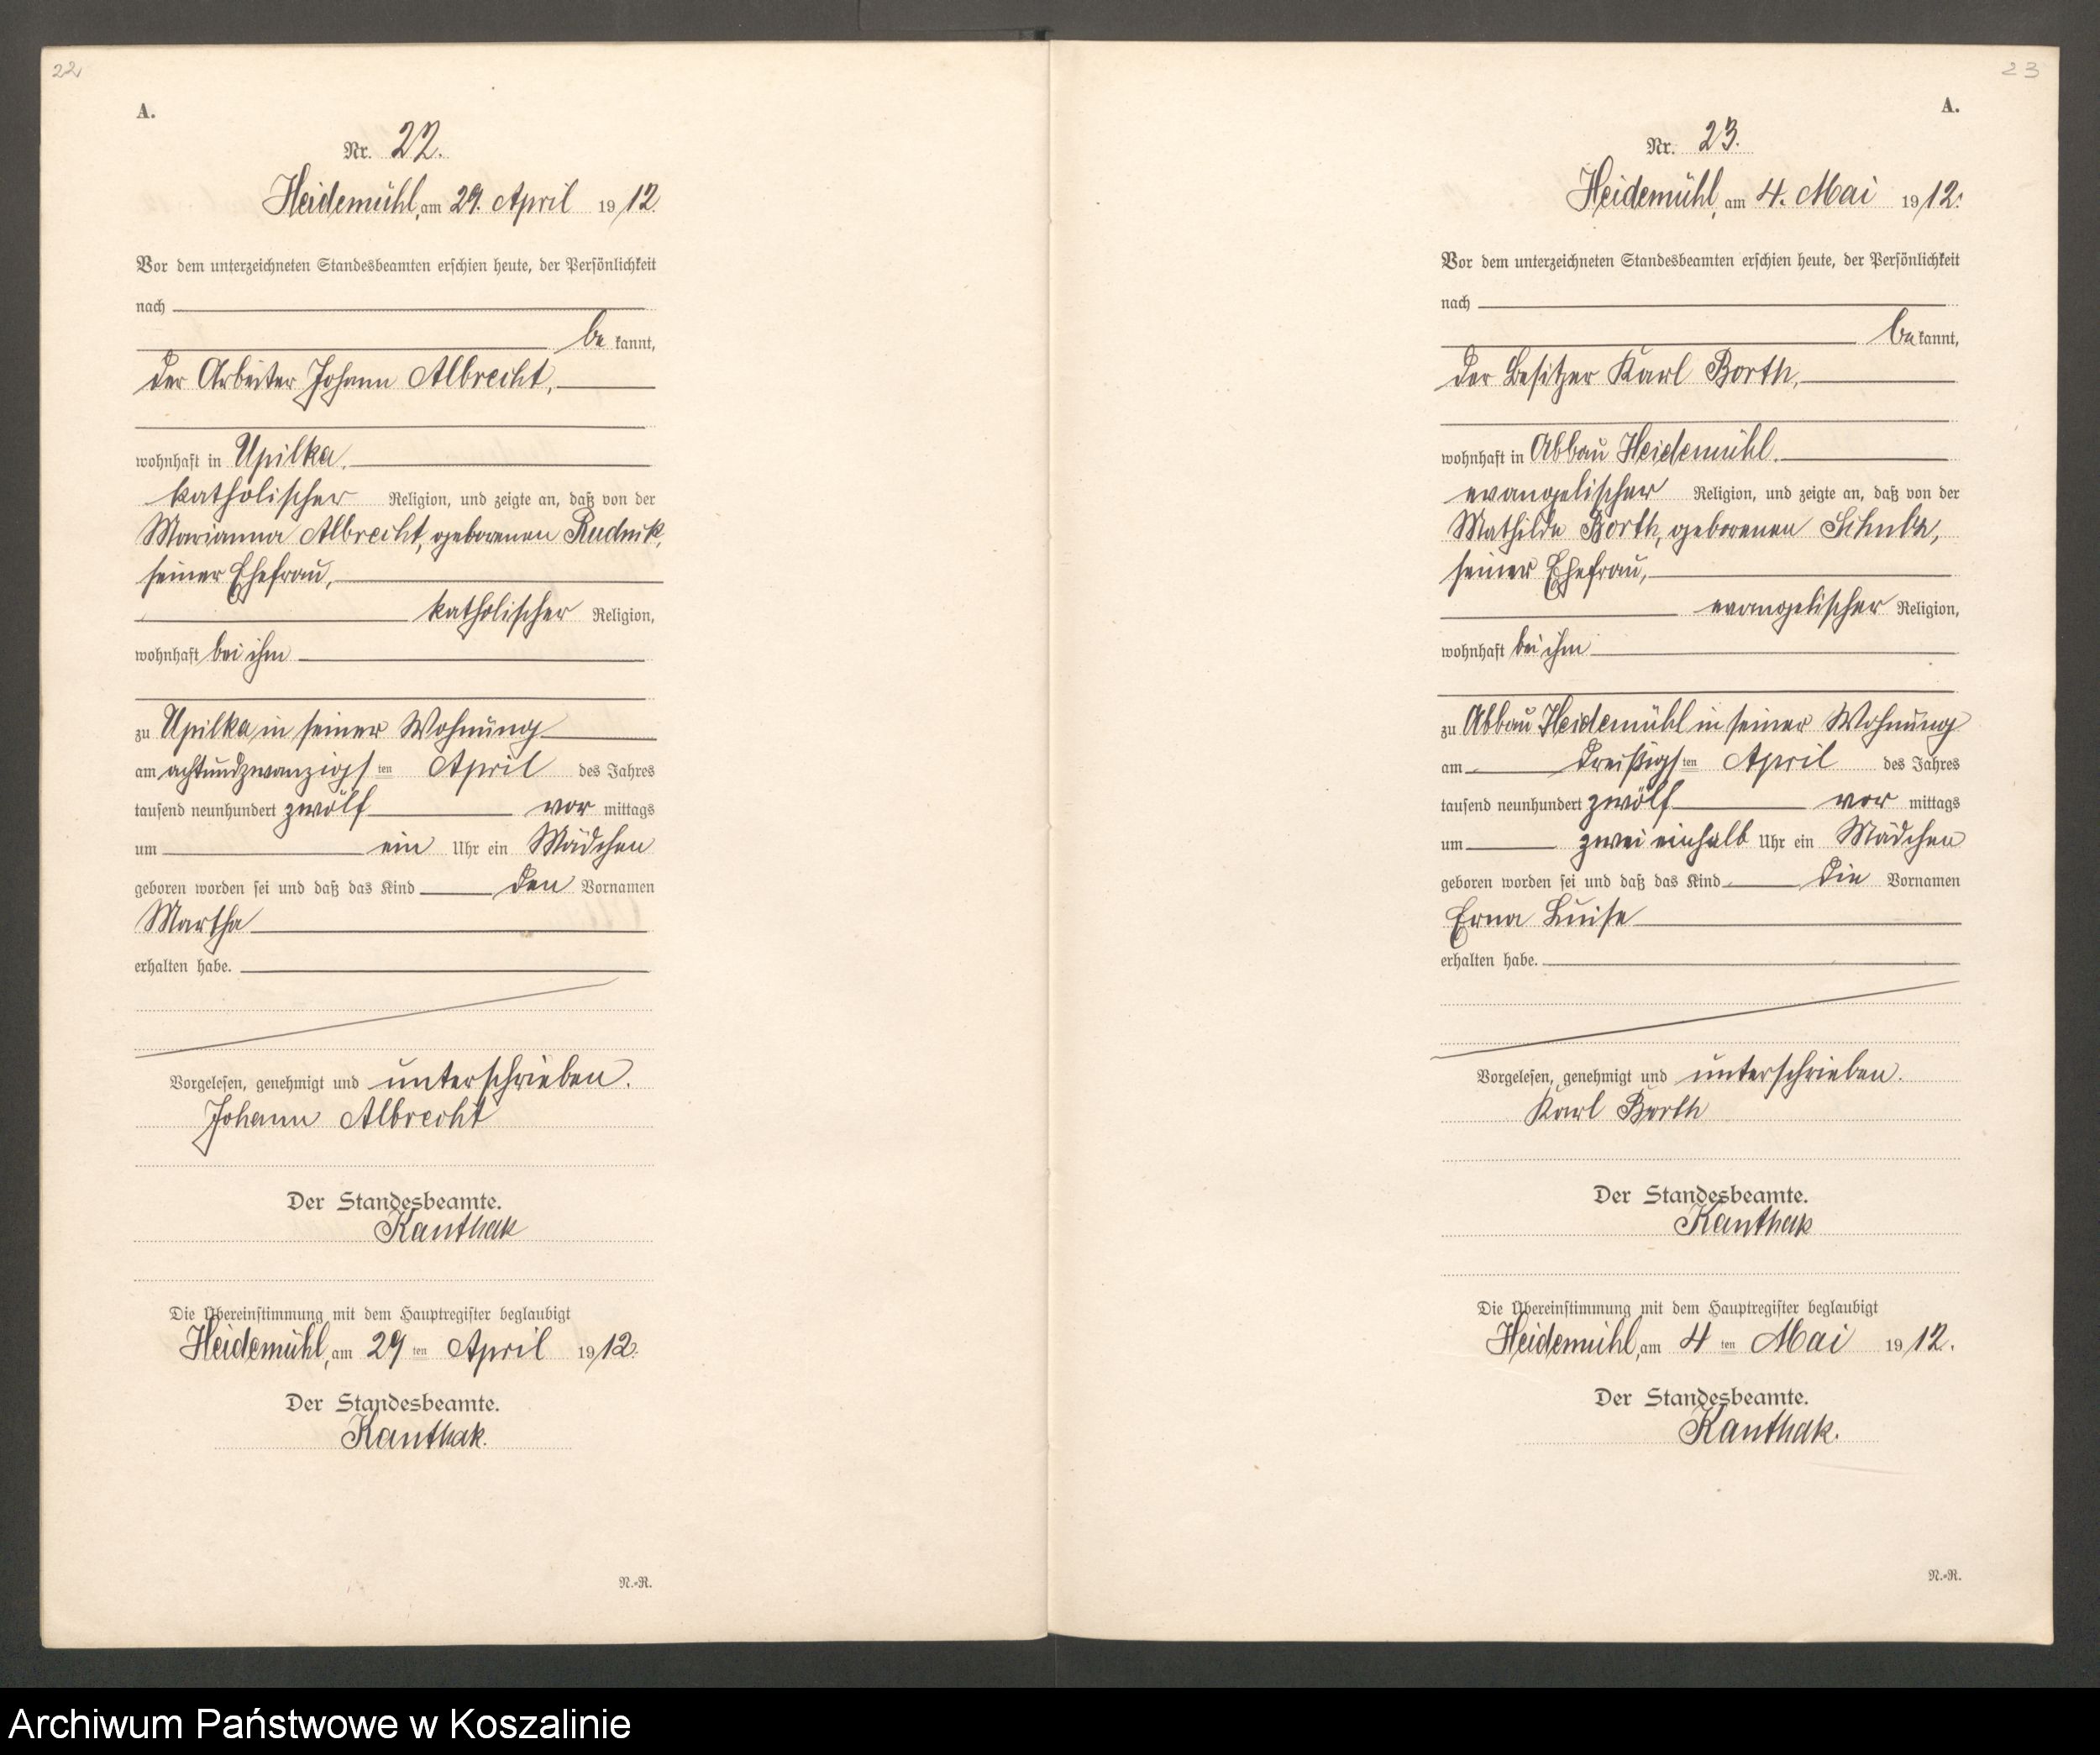 22
A.
Nr. 22.
Heidemühl, am 29. April 1912.
Vor dem unterzeichneten Standesbeamten erschien heute, der Persönlichkeit
nach
bekannt,
der Arbeiter Johann Albrecht,
wohnhaft in Upilka.
katholischer Religion, und zeigte an, daß von der
Marianna Albrecht, geborenen Rudnik,
seiner Ehefrau,
katholischer Religion,
wohnhaft bei ihm
zu Upilka in seiner Wohnung
am achtundzwanzigsten April des Jahres
tausend neunhundert zwölf vormittags
um ein Uhr ein Mädchen
geboren worden sei und daß das Kind den Vornamen
Martha
erhalten habe.
Vorgelesen, genehmigt und unterschrieben.
Johann Albrecht
Der Standesbeamte.
Kanthak
Die Übereinstimmung mit dem Hauptregister beglaubigt
Heidemühl, am 29ten April 1912.
Der Standesbeamte.
Kanthak.
N.-R.
23
A.
Nr. 23.
Heidemühl, am 4. Mai 1912.
Vor dem unterzeichneten Standesbeamten erschien heute, der Persönlichkeit
nach
bekannt,
der Besitzer Karl Borth,
wohnhaft in Abbau Heidemühl.
evangelischer Religion, und zeigte an, daß von der
Mathilde Borth, geborenen Schulz,
seiner Ehefrau,
evangelischer Religion,
wohnhaft bei ihm
zu Abbau Heidemühl in seiner Wohnung
am dreißigsten April des Jahres
tausend neunhundert zwölf vormittags
um zwei einhalb Uhr ein Mädchen
geboren worden sei und daß das Kind die Vornamen
Erna Luise
erhalten habe.
Vorgelesen, genehmigt und unterschrieben.
Karl Borth
Der Standesbeamte.
Kanthak
Die Übereinstimmung mit dem Hauptregister beglaubigt
Heidemühl, am 4ten Mai 1912.
Der Standesbeamte.
Kanthak.
N.-R.
Archiwum Państwowe w Koszalinie